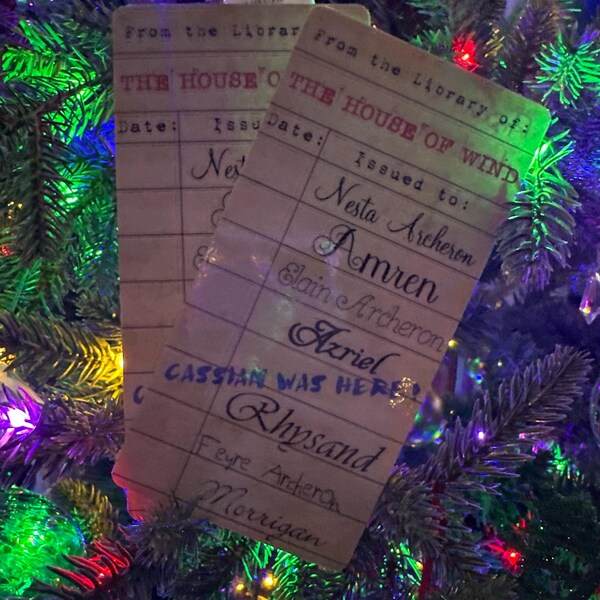 From the Librar
THE HOUSE O
Date: Issu
Nes
From the Library of:
THE HOUSE OF WIND
Date: Issued to:
Nesta Archeron
Amren
Elain Archeron
Azriel
CASSIAN WAS HERE!
Rhysand
Feyre Archeron
Morrigan